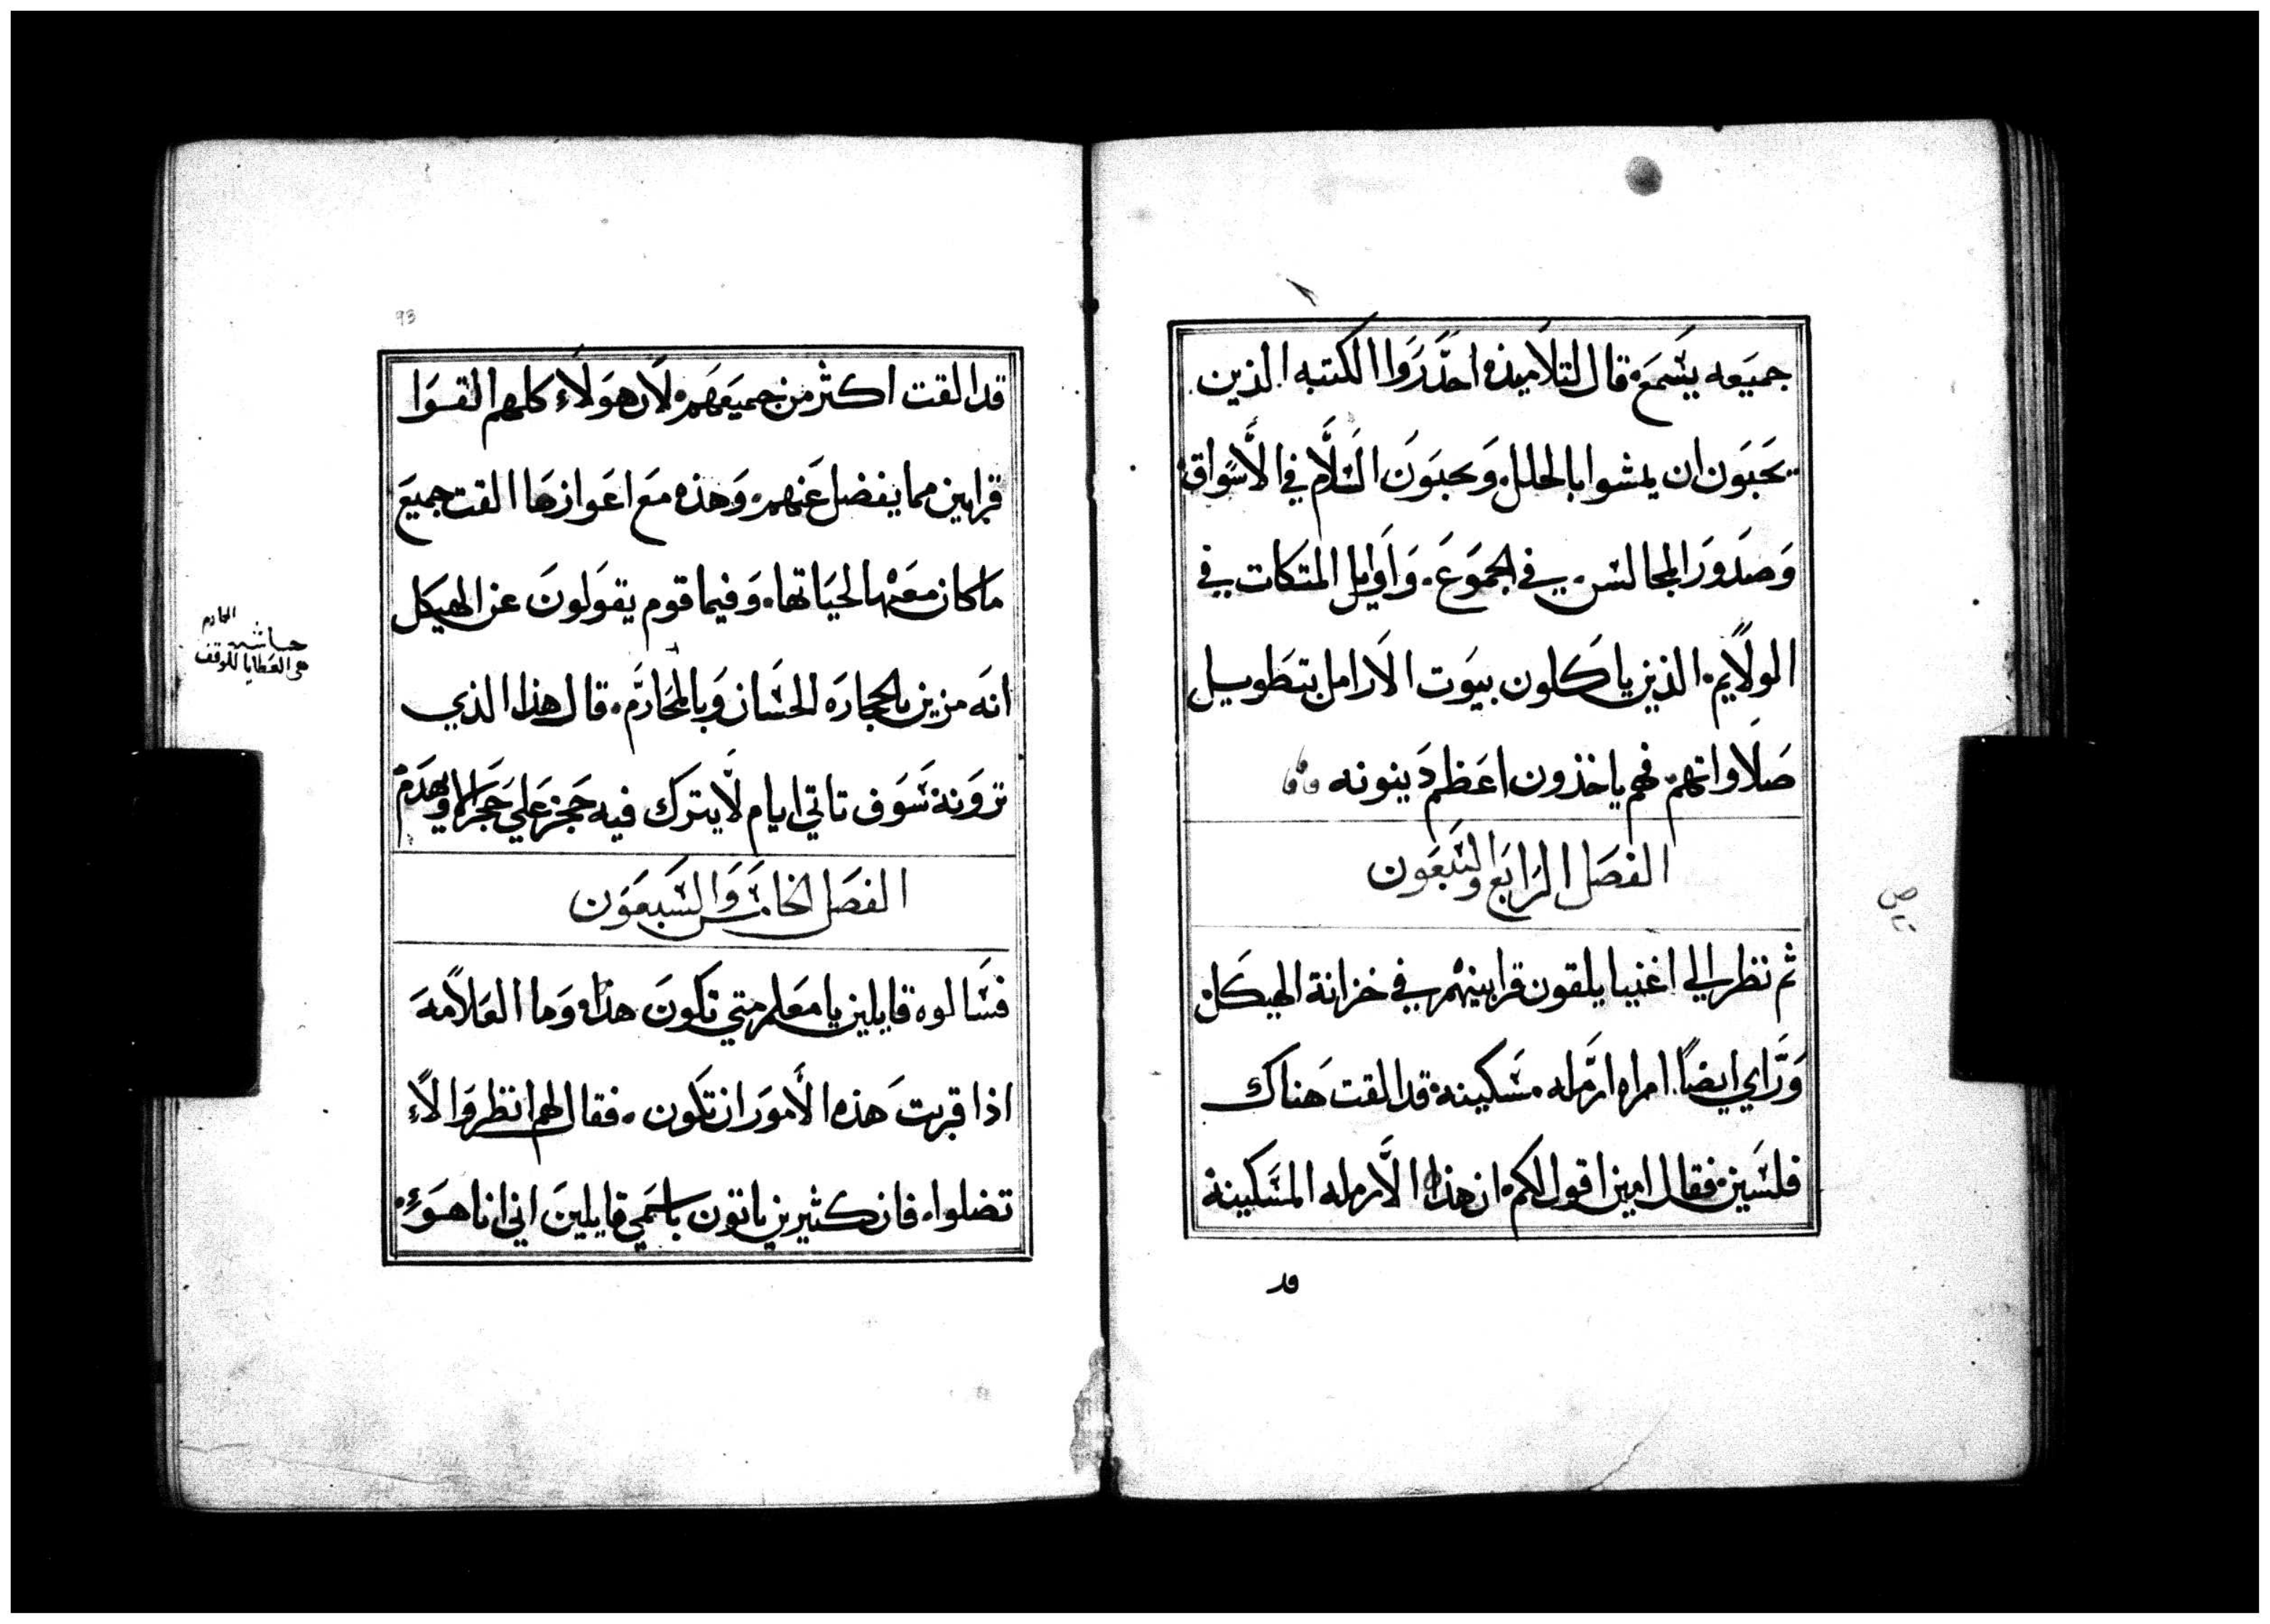 جميعه يسمع قال لتلاميذه احذروا الكتبه الذين
يحبون ان يمشوا بالحلل ويحبون السلام في الاسواق
وصدور المجالس في الجموع واوايل المتكات في
الولايم الذين ياكلون بيوت الارامل بتطويل
صلاواتهم فهم ياخذون اعظم دينونه
الفصل الرابع والسبعون
ثم نظر الي اغنيا يلقون قرابينهم في خزانة الهيكل
وراي ايضا امراه ارمله مسكينه قد القت هناك
فلسين فقال امين اقول لكم ان هذه الارمله المسكينة
قد
ص
93
قد القت اكثر من جميعهم لان هولاء كلهم القوا
قرابين مما يفضل عنهم وهذه مع اعوازها القت جميع
ما كان معها لحياتها وفيما قوم يقولون عن الهيكل
انه مزين بالحجاره الحسان وبالمحارم قال هذا الذي
ترونه سوف تاتي ايام لا يترك فيه حجر علي حجر الا ويهدم
الفصل الخامس والسبعون
فسالوه قايلين يا معلم متي تكون هذه وما العلامه
اذا قربت هذه الامور ان تكون فقال لهم انظروا لاء
تضلوا فان كثيرين ياتون باسمي قايلين اني انا هو
المحارم
حاشيه
هي العطايا للوقف